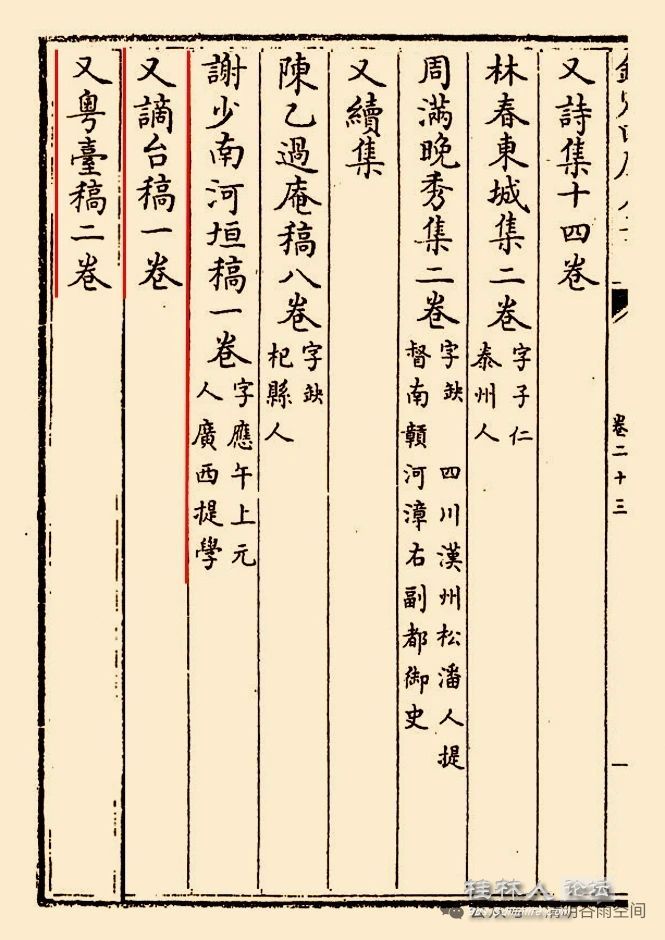 卷二十三
一
又詩集十四卷
林春東城集二卷 字子仁泰州人
周滿晚秀集二卷 字缺 四川漢州松潘人提督南贛河漳右副都御史
又續集
陳乙過庵稿八卷 字缺杞縣人
謝少南河垣稿一卷 字應午上元人廣西提學
又謫台稿一卷
又粵臺稿二卷
桂林人论坛